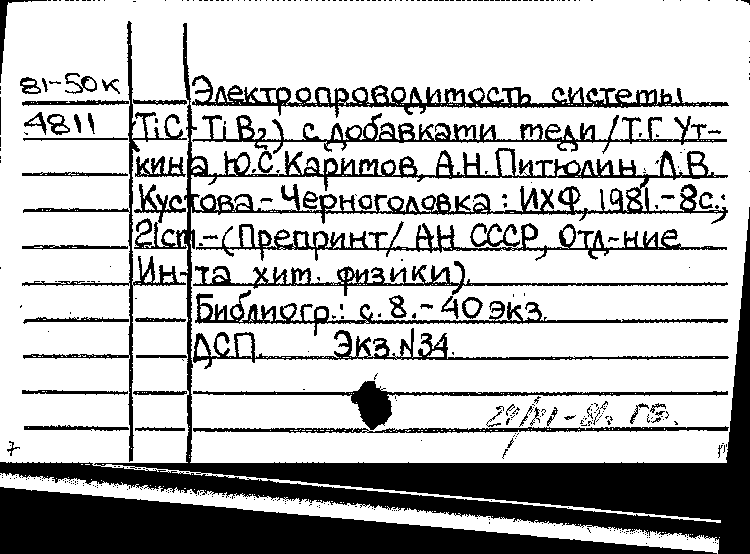 81-50к Электропроводимость системы
4811 (TiC-TiB₂) с добавками меди / Т.Г. Ут-
кина, Ю.С. Каримов, А.Н. Питюлин, Л.В.
Кустова.- Черноголовка: ИХФ, 1981.-8с.;
21см.-(Препринт/ АН СССР, Отд-ние
Ин-та хим. физики).
Библиогр.: с. 8.- 40 экз.
ДСП. Экз.N34.
7